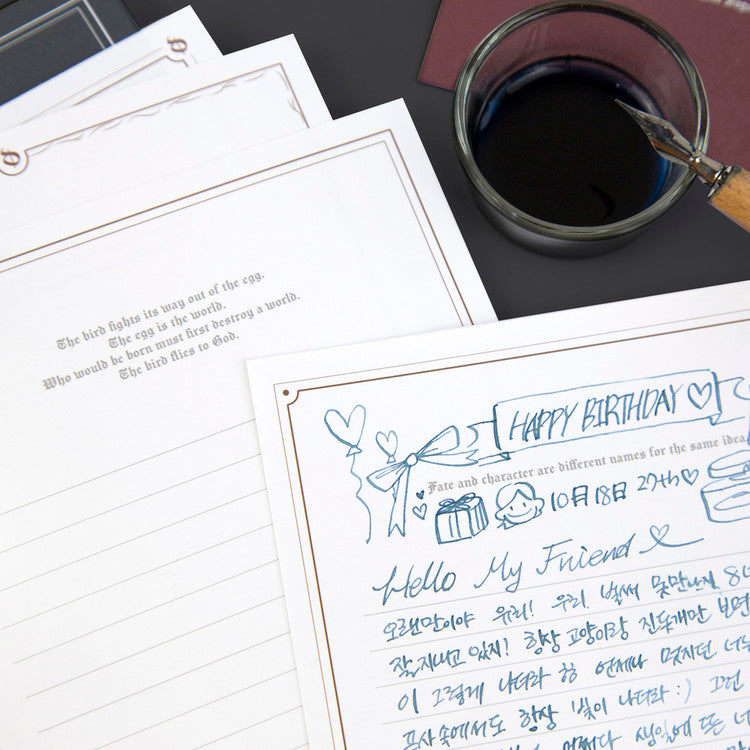 The bird fights its way out of the egg.
The egg is the world.
Who would be born must first destroy a world.
The bird flies to God.
HAPPY BIRTHDAY
Fate and character are different names for the same idea.
10月18日 27th
Hello My Friend
오랜만이야 우리! 우리 벌써 못만난지 8년
잘 지내고 있지! 항상 고양이랑
이 그렇게 나더라 항 언제나 멋지던 너는
속에서도 항상 빛이 나더라 :) 그런
생일에 또 너